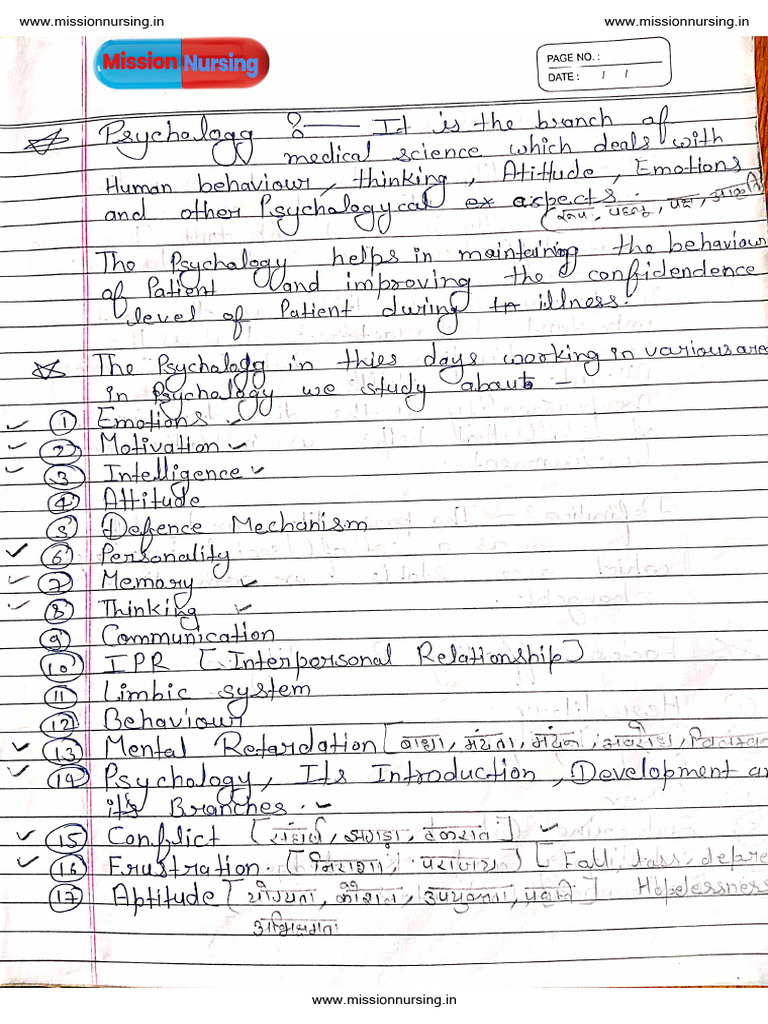 www.missionnursing.in www.missionnursing.in
Mission Nursing
PAGE NO. :
DATE : / /
Psychalogy :— It is the branch of
medical science which deals with
Human behaviour, thinking, Atittude, Emotions
and other Psychalogycal ex aspects.
(रूप, पहलू, पक्ष,
The Psychalogy helps in maintaining the behaviour
of Patient and improving the confidendence
level of Patient during tn illness.
The Psychalogy in thies days working in various are
in Psychalogy we study about -
1 Emotions
2 Motivation
3 Intelligence
4 Attitude
5 Defence Mechanism
6 Personality
7 Memory
8 Thinking
9 Communication
10 IPR [Interpersonal Relationship]
11 Limbic system
12 Behaviour
13 Mental Retardation [बाधा, मंदता, मंदन, अवरोध,
14 Psychalogy, Its Introduction, Development an
it's Branches.
15 Conflict [संघर्ष, झगड़ा, टकराव]
16 Frustration. [निराशा, पराजय] [Fall, loss, depre
17 Aptitude [योग्यता, कौशल, उपयुक्तता, प्रवृत्ति] Hopelessness
अभिक्षमता
www.missionnursing.in